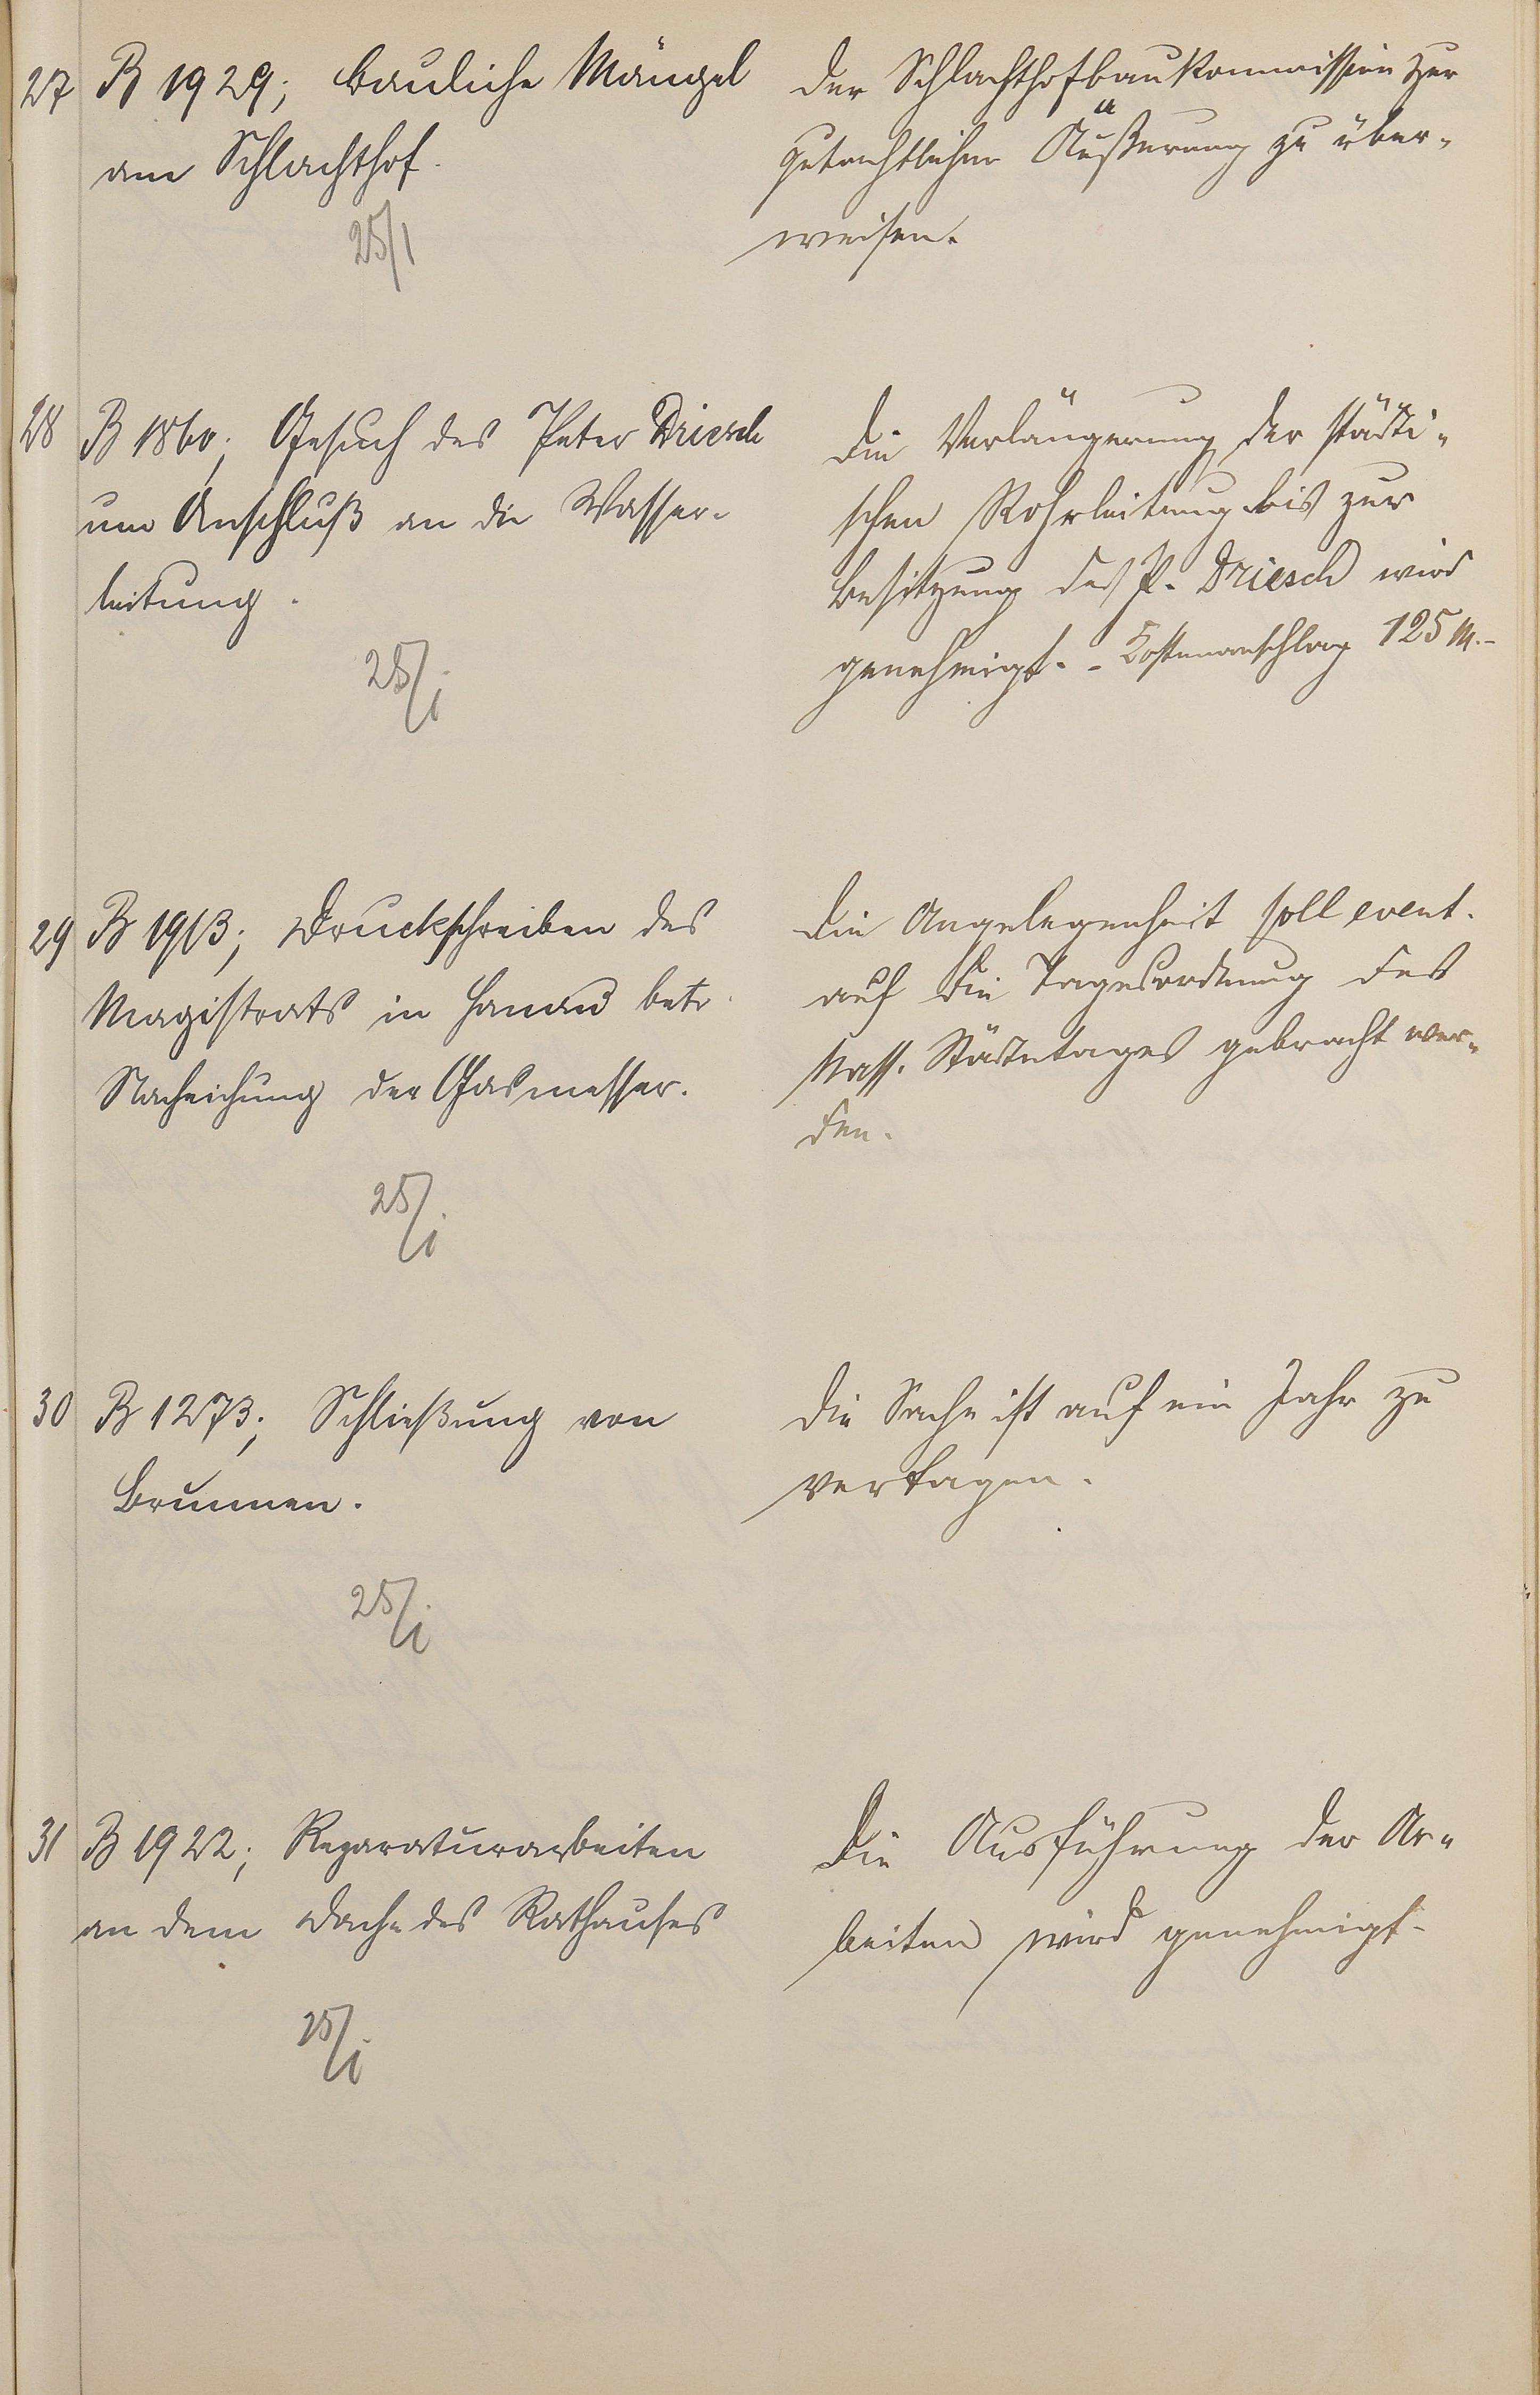 27 B 1929; bauliche Mängel
am Schlachthof.
25/1
Der Schlachthofbaukommission zur
gutachtlichen Äußerung zu über-
weisen.
28 B 1860; Gesuch des Peter Driesch
um Anschluß an die Wasser-
leitung.
25/I
Die Verlängerung der städti-
schen Rohrleitung bis zur
Besitzung des P. Driesch wird
genehmigt. - Kostenanschlag 125 M.-
29 B 1913; Druckschreiben des
Magistrats in Hanau betr.
Nacheichung der Gasmesser.
25/I
Die Angelegenheit soll event.
auf die Tagesordnung des
Nass. Städtetages gebracht wer-
den.
30 B 1273; Schließung von
Brunnen.
25/I
Die Sache ist auf ein Jahr zu
vertagen.
31 B 1922; Reparaturarbeiten
an dem Dache des Rathauses
25/I
Die Ausführung der Ar-
beiten wird genehmigt.